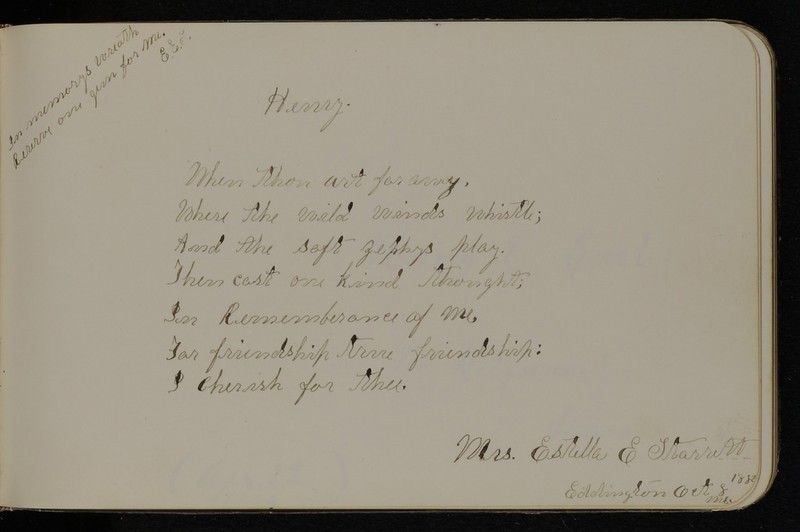 In memorys wreath
Reserve one gem for me.
E.E.S.
Henry.
When thou art far away,
Where the wild winds whistle;
And the soft zephys play.
Then cast one kind thought;
In Rememberance of Me,
For friendship true friendship:
I Cherish for thee.
Mrs. Estella E Starrett
Eddington Oct 8
Me.